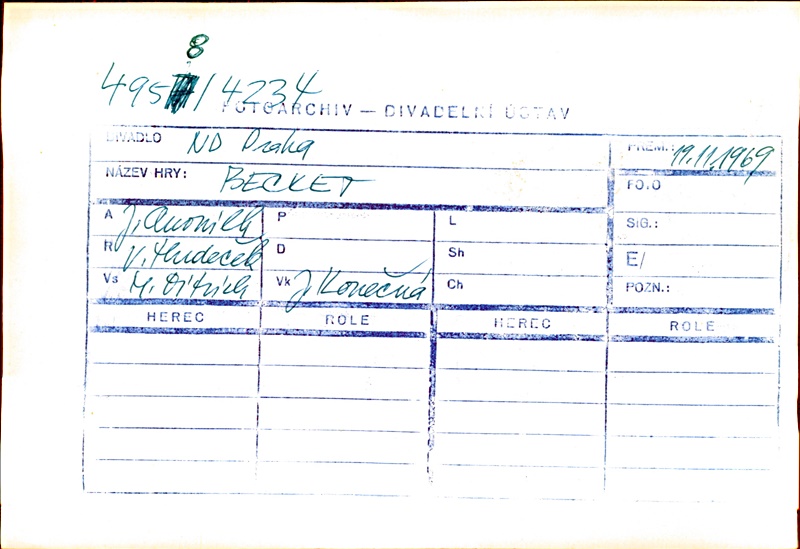 8
495 /4234
FOTOARCHIV — DIVADELNÍ ÚSTAV
DIVADLO ND Praha
PREM.: 19.11.1969
NÁZEV HRY: BECKET
FOTO
A J. Anouilh P L SIG.:
R V. Hudeček D Sh E/
Vs M. Ditrich Vk J. Konečná Ch POZN.:
HEREC ROLE HEREC ROLE